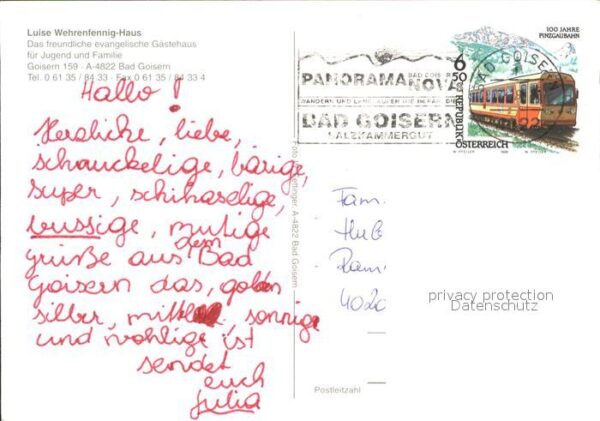 Luise Wehrenfennig-Haus
Das freundliche evangelische Gästehaus
für Jugend und Familie
Goisern 159 · A-4822 Bad Goisern
Tel. 0 61 35 / 84 33 - Fax 0 61 35 / 84 33 4
Hallo!
Herzliche, liebe,
schauckelige, bärige,
super, schihaselige,
bussige, mutige
grüße aus dem Bad
Goisern das, golden
silber, mittl, sonnige
und wohlige ist
sendet
euch
Julia
A-4822 Bad Goisern
PANORAMA NOVA
BAD GOISERN
SALZKAMMERGUT
BAD GOISE
100 JAHRE
PINZGAUBAHN
6
50
REPUBLIK
ÖSTERREICH
Fam.
Hub
Ram
4020
privacy protection
Datenschutz
Postleitzahl